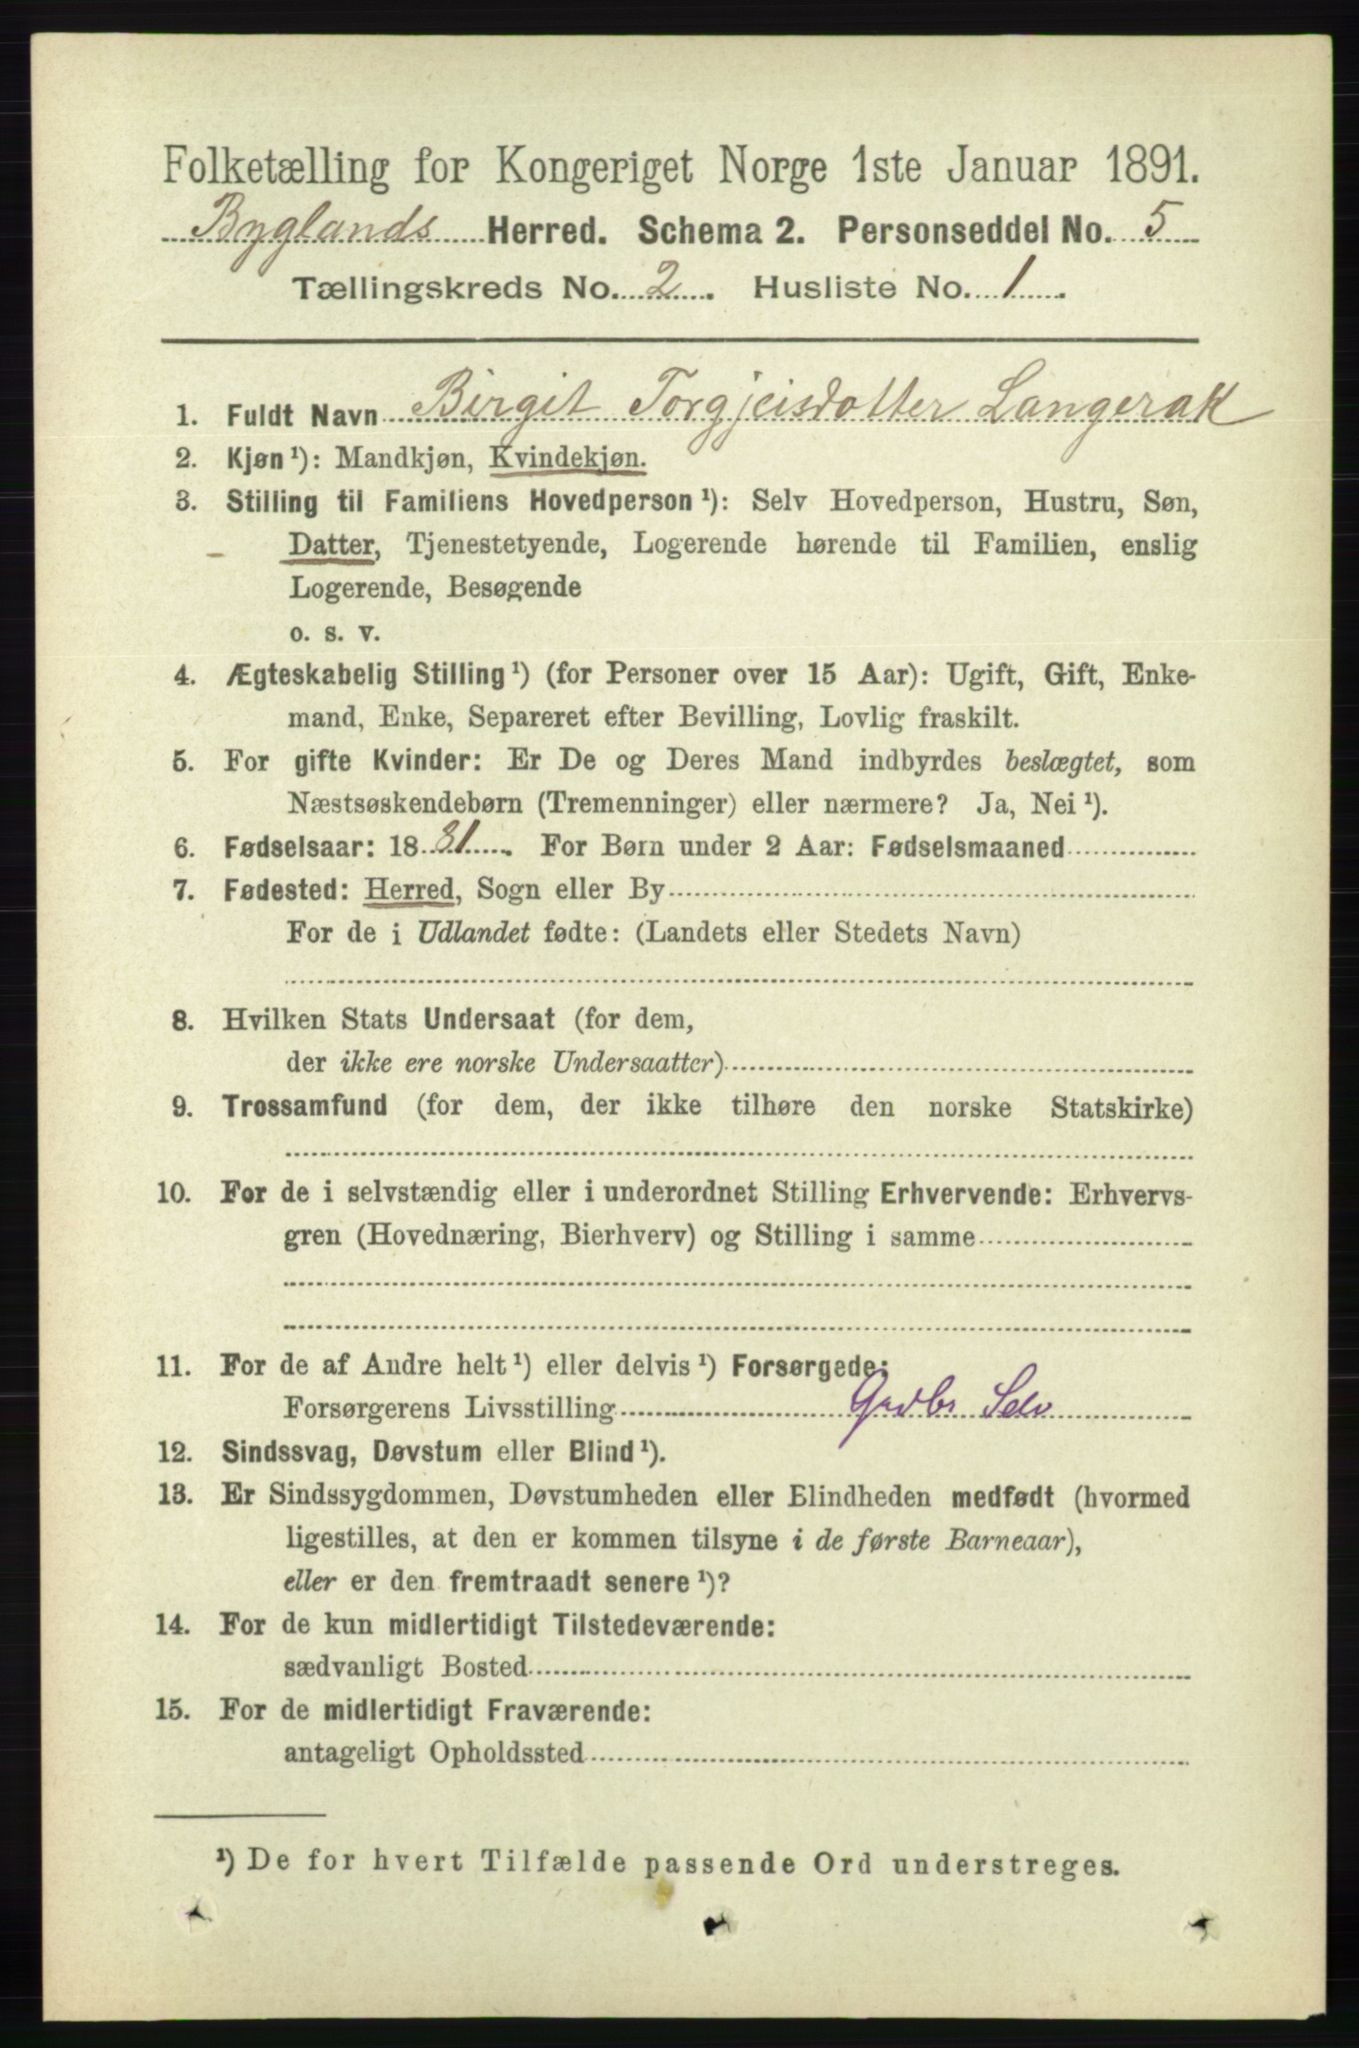 Folketælling for Kongeriget Norge 1ste Januar 1891.
Byglands Herred. Schema 2. Personseddel No. 5
Tællingskreds No. 2. Husliste No. 1.
1. Fuldt Navn Birgit Torgjeisdotter Langerak
2. Kjøn¹): Mandkjøn, Kvindekjøn.
3. Stilling til Familiens Hovedperson¹): Selv Hovedperson, Hustru, Søn,
Datter, Tjenestetyende, Logerende hørende til Familien, enslig
Logerende, Besøgende
o. s. v.
4. Ægteskabelig Stilling¹) (for Personer over 15 Aar): Ugift, Gift, Enke-
mand, Enke, Separeret efter Bevilling, Lovlig fraskilt.
5. For gifte Kvinder: Er De og Deres Mand indbyrdes beslægtet, som
Næstsøskendebørn (Tremenninger) eller nærmere? Ja, Nei¹).
6. Fødselsaar: 1881. For Børn under 2 Aar: Fødselsmaaned
7. Fødested: Herred, Sogn eller By
For de i Udlandet fødte: (Landets eller Stedets Navn)
8. Hvilken Stats Undersaat (for dem,
der ikke ere norske Undersaatter)
9. Trossamfund (for dem, der ikke tilhøre den norske Statskirke)
10. For de i selvstændig eller i underordnet Stilling Erhvervende: Erhvervs-
gren (Hovednæring, Bierhverv) og Stilling i samme
11. For de af Andre helt¹) eller delvis¹) Forsørgede:
Forsørgerens Livsstilling Grdbr Selv
12. Sindssvag, Døvstum eller Blind¹).
13. Er Sindssygdommen, Døvstumheden eller Blindheden medfødt (hvormed
ligestilles, at den er kommen tilsyne i de første Barneaar),
eller er den fremtraadt senere¹)?
14. For de kun midlertidigt Tilstedeværende:
sædvanligt Bosted
15. For de midlertidigt Fraværende:
antageligt Opholdssted
¹) De for hvert Tilfælde passende Ord understreges.